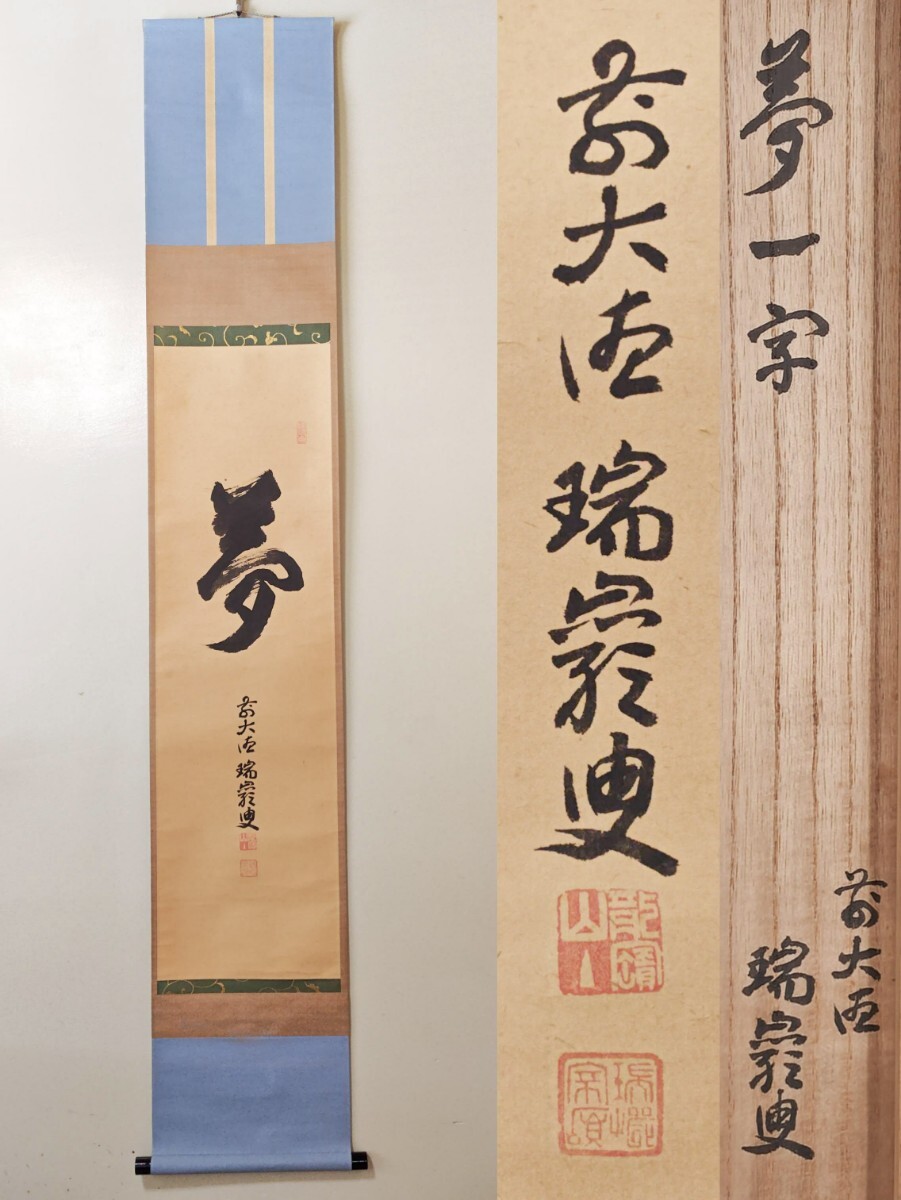 夢
前大徳 瑞巖叟
前大徳 瑞巖叟
瑞巖
宗碩
夢一字
前大徳
瑞巖叟